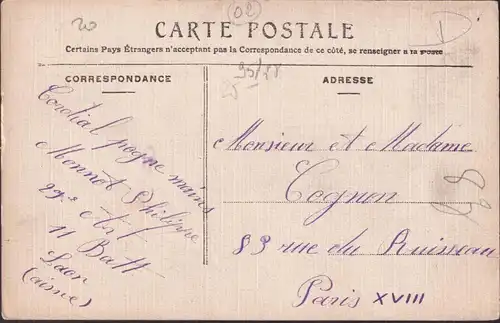 20
(02)
CARTE POSTALE
Certains Pays Étrangers n'acceptant pas la Correspondance de ce côté, se renseigner à la Poste
CORRESPONDANCE
Cordial pogne mains
Monnot Philippe
29e Art
11 Batt
Laon
(aisne)
ADRESSE
Monsieur et Madame
Cognon
83 rue du Ruisseau
Paris XVIII